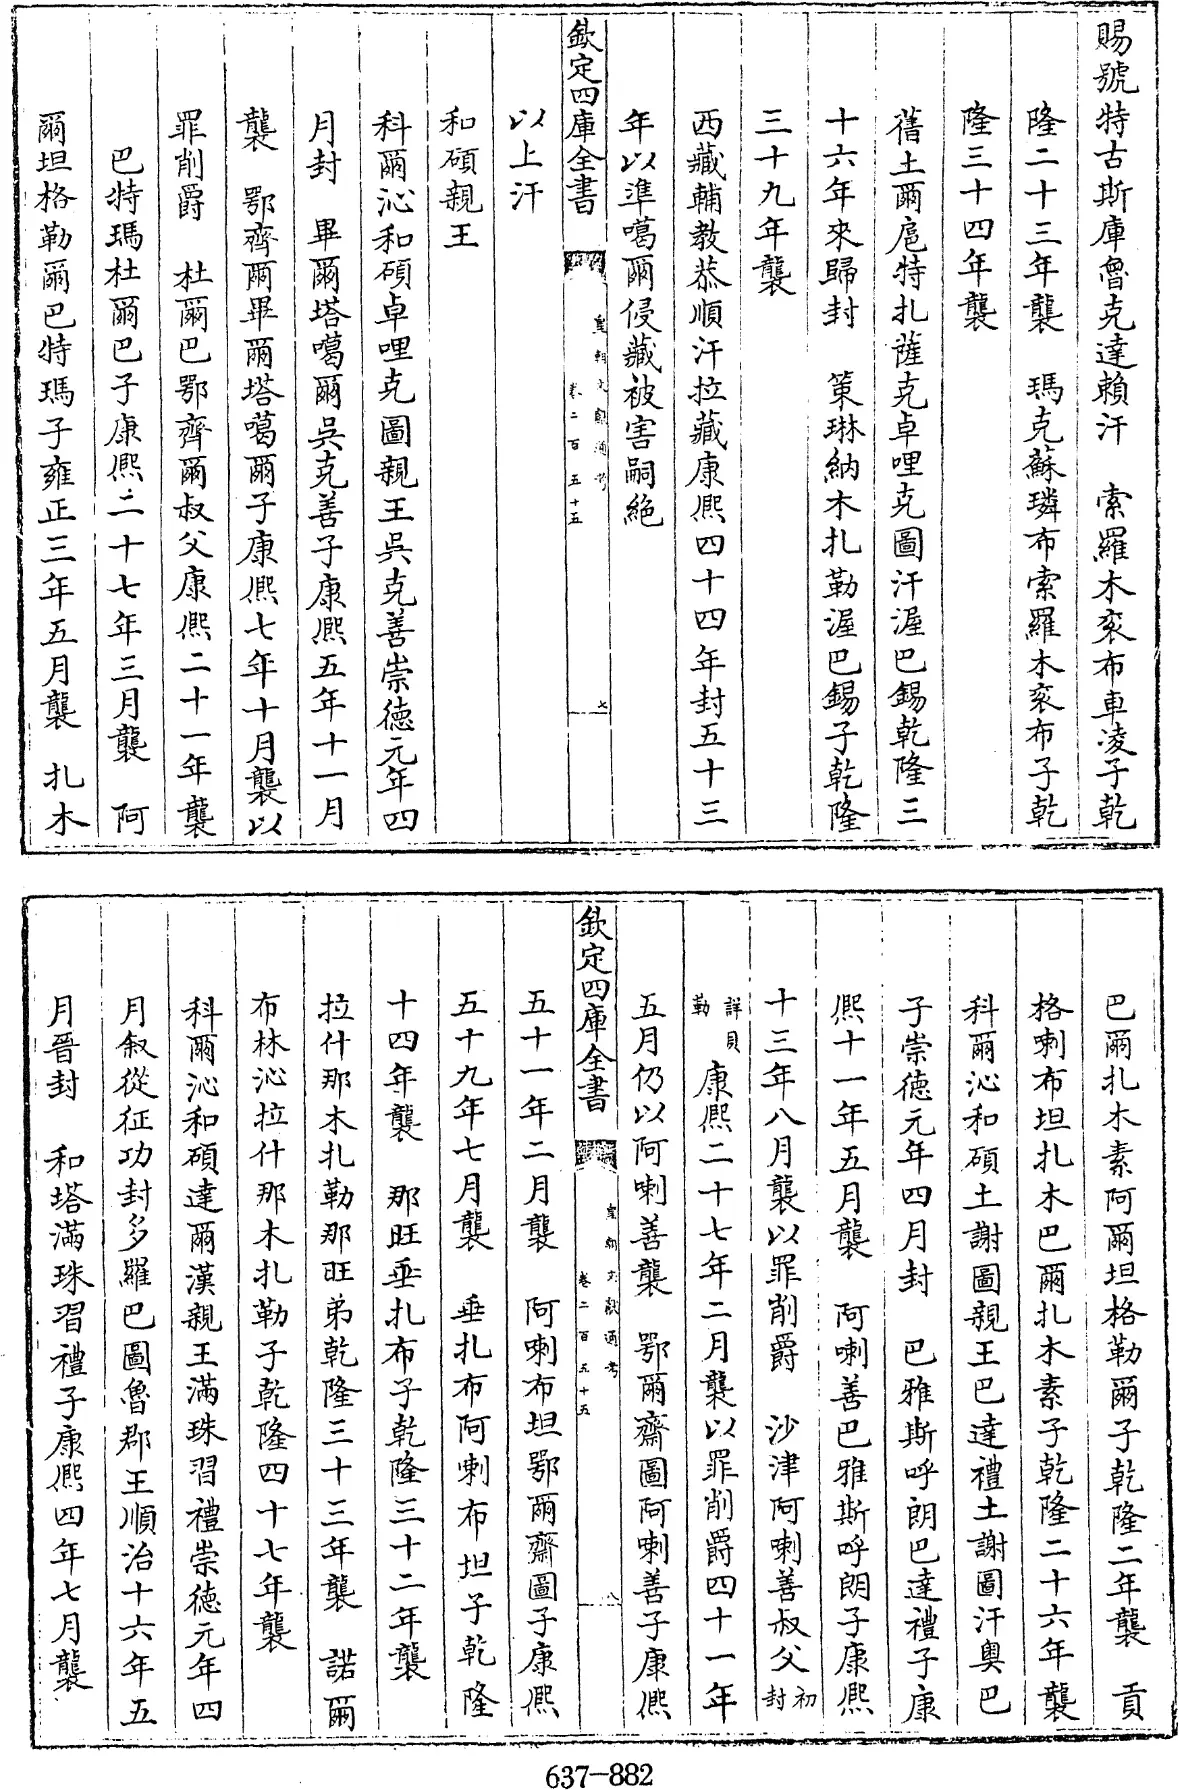 賜號特古斯庫魯克達賴汗　索羅木衮布車凌子乾
隆二十三年襲　瑪克蘇璘布索羅木衮布子乾
隆三十四年襲
舊土爾扈特扎薩克卓哩克圖汗渥巴錫乾隆三
十六年來歸封　策琳納木扎勒渥巴錫子乾隆
三十九年襲
西藏輔教恭順汗拉藏康熙四十四年封五十三
年以準噶爾侵藏被害嗣絶
欽定四庫全書　皇朝文獻通考　卷二百五十五　七
以上汗
和碩親王
科爾沁和碩卓哩克圖親王吳克善崇德元年四
月封　畢爾塔噶爾吳克善子康熙五年十一月
襲　鄂齊爾畢爾塔噶爾子康熙七年十月襲以
罪削爵　杜爾巴鄂齊爾叔父康熙二十一年襲
巴特瑪杜爾巴子康熙二十七年三月襲　阿
爾坦格勒爾巴特瑪子雍正三年五月襲　扎木
巴爾扎木素阿爾坦格勒爾子乾隆二年襲　貢
格喇布坦扎木巴爾扎木素子乾隆二十六年襲
科爾沁和碩土謝圖親王巴達禮土謝圖汗奥巴
子崇德元年四月封　巴雅斯呼朗巴達禮子康
熙十一年五月襲　阿喇善巴雅斯呼朗子康熙
十三年八月襲以罪削爵　沙津阿喇善叔父初封
詳貝勒　康熙二十七年二月襲以罪削爵四十一年
五月仍以阿喇善襲　鄂爾齋圖阿喇善子康熙
欽定四庫全書　皇朝文獻通考　卷二百五十五　八
五十一年二月襲　阿喇布坦鄂爾齋圖子康熙
五十九年七月襲　垂扎布阿喇布坦子乾隆
十四年襲　那旺垂扎布子乾隆三十二年襲
拉什那木扎勒那旺弟乾隆三十三年襲　諾爾
布林沁拉什那木扎勒子乾隆四十七年襲
科爾沁和碩達爾漢親王滿珠習禮崇德元年四
月叙從征功封多羅巴圖魯郡王順治十六年五
月晉封　和塔滿珠習禮子康熙四年七月襲
637-882